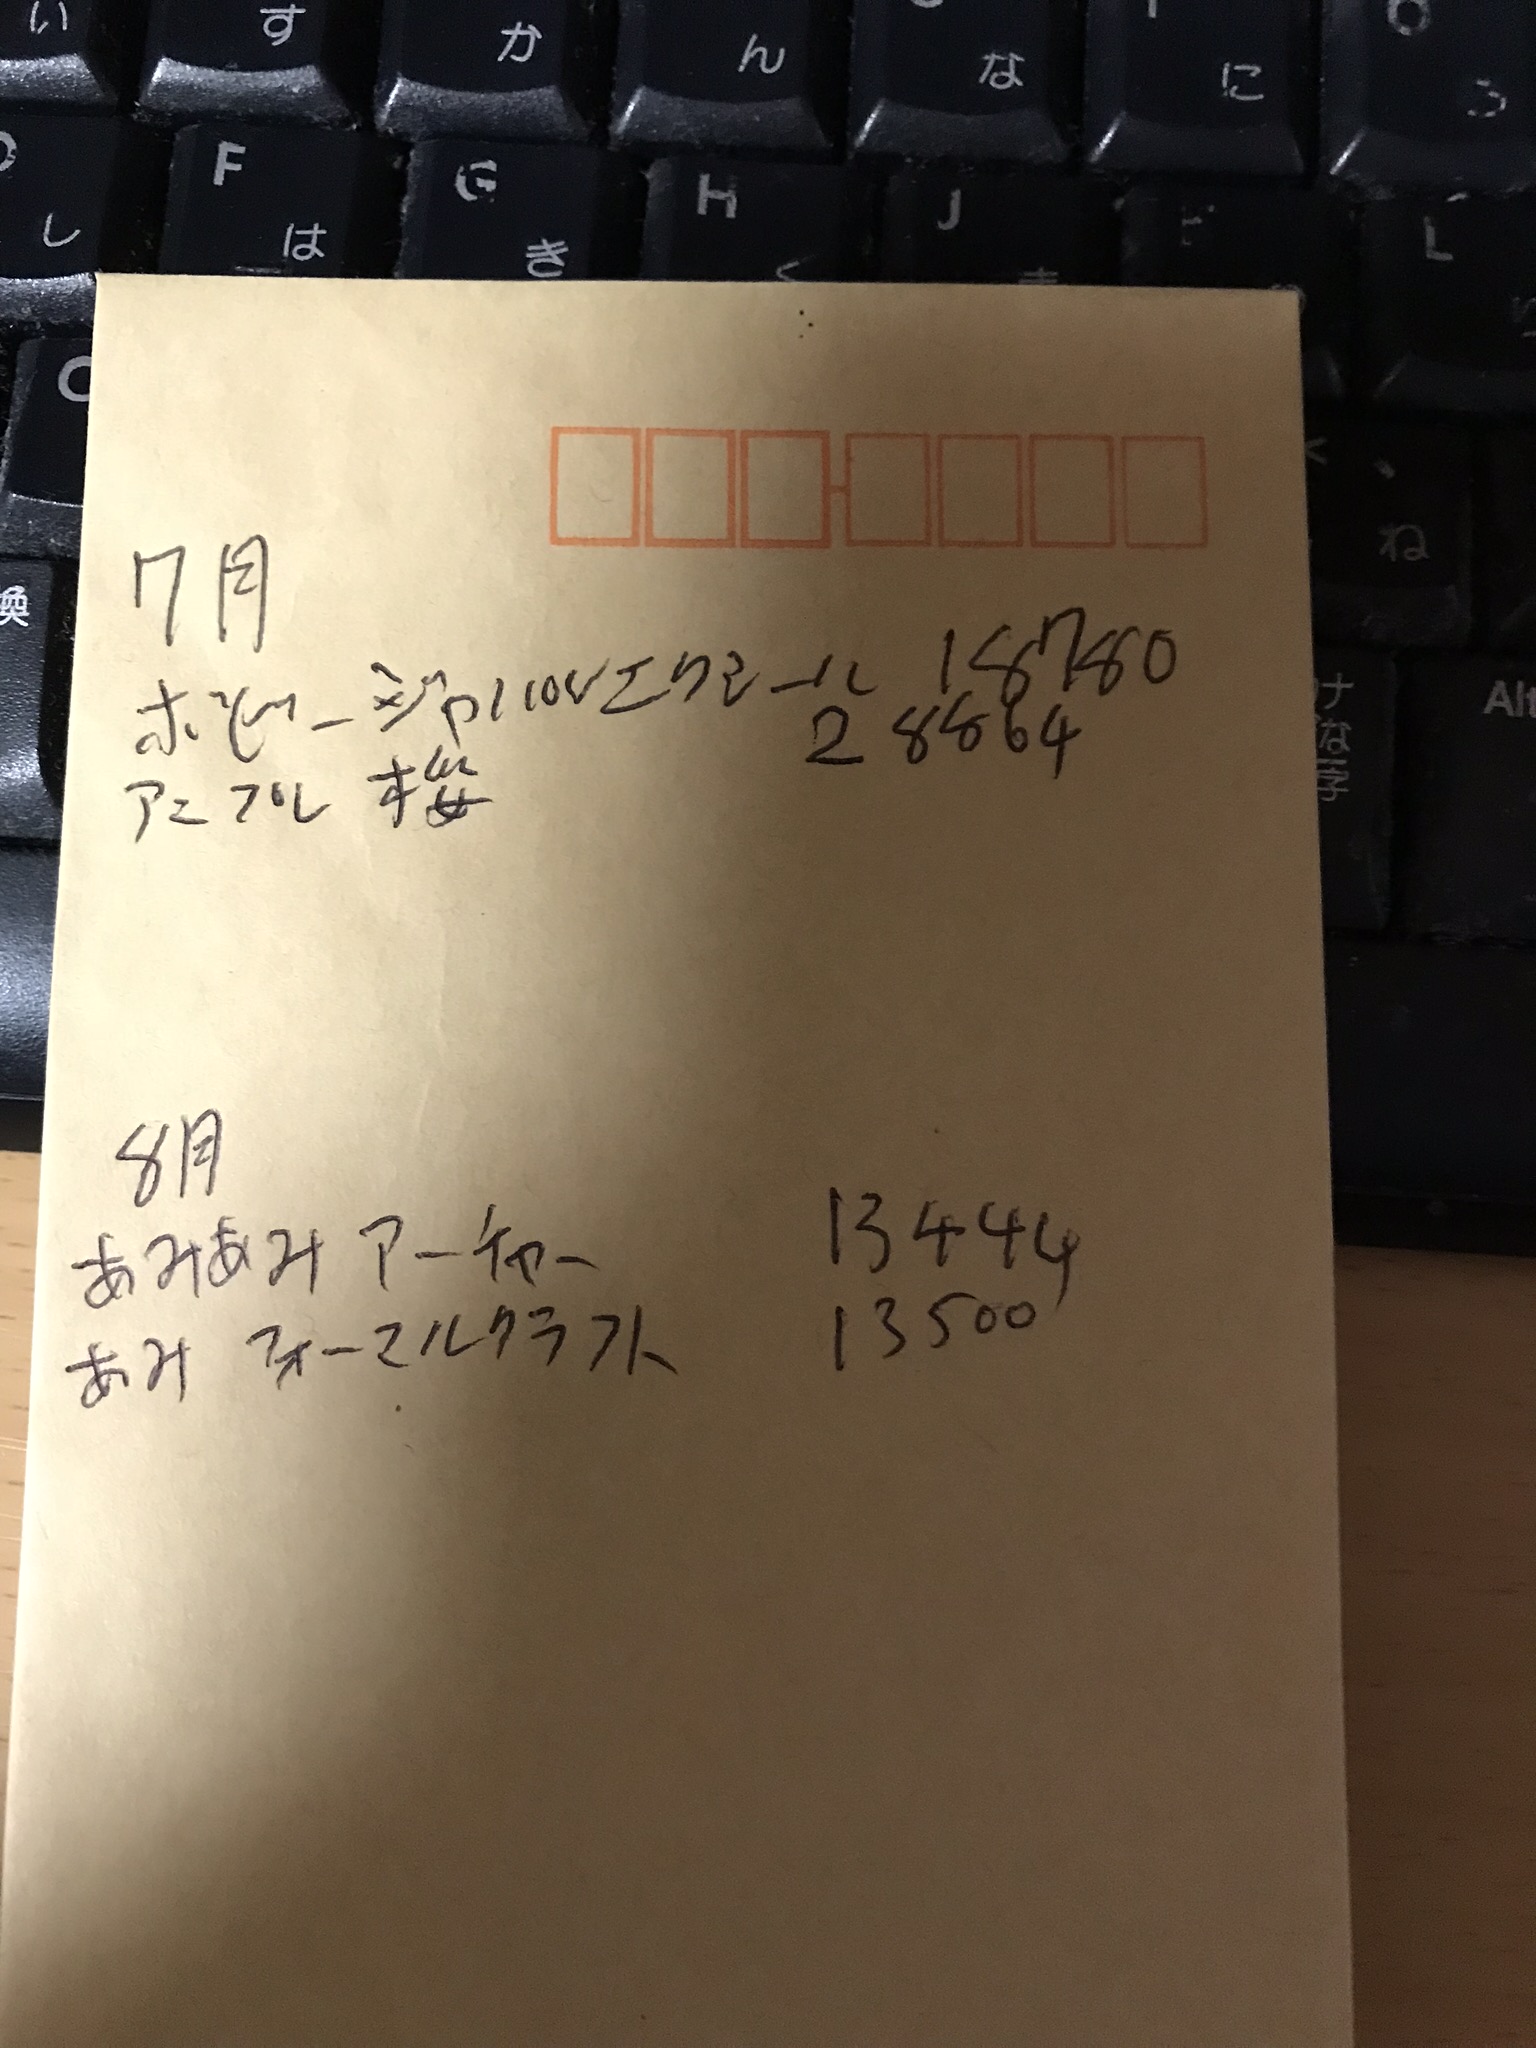 い す か ん な に
F H J L
し は き く
C ね
換
Alt
7月
ホビージャパンエクセール 18780
28864
アニプレ 桜
8月
あみあみ アーチャー 13444
あみ フォーマルクラフト 13500